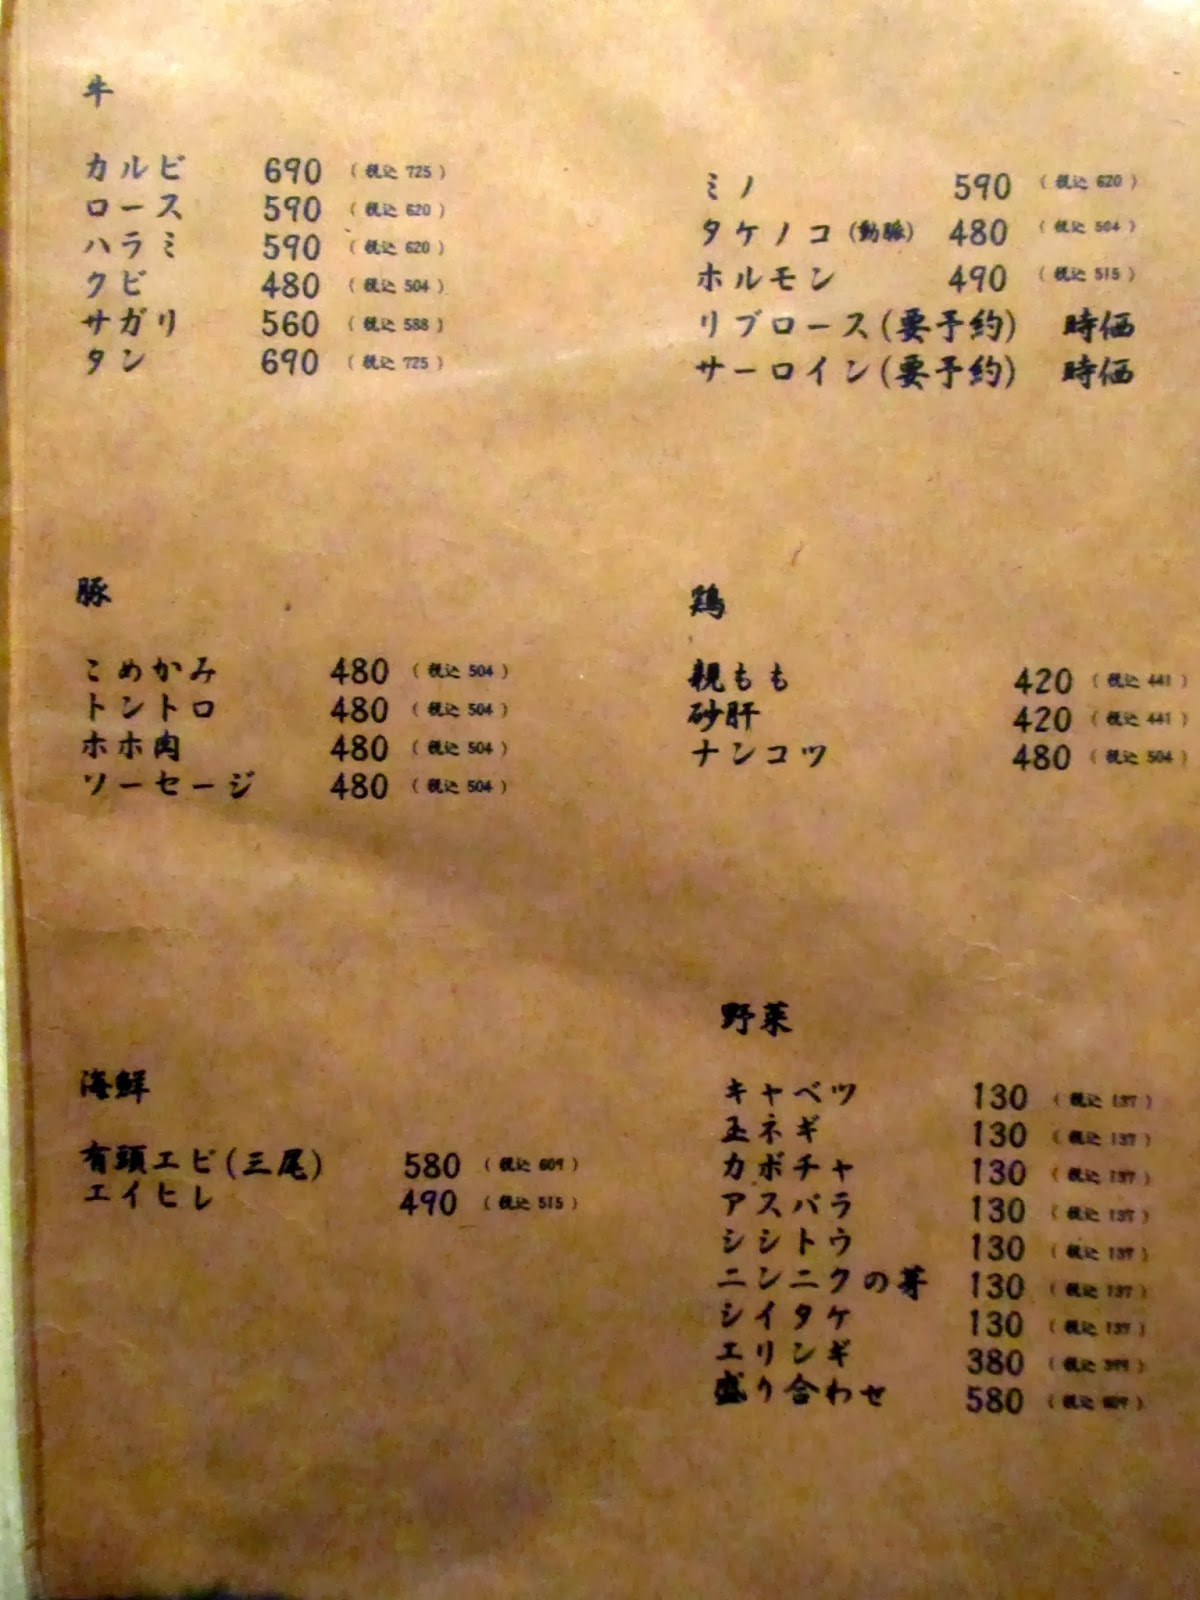 牛
カルビ 690 (税込 725)
ロース 590 (税込 620)
ハラミ 590 (税込 620)
クビ 480 (税込 504)
サガリ 560 (税込 588)
タン 690 (税込 725)
ミノ 590 (税込 620)
タケノコ(動脈) 480 (税込 504)
ホルモン 490 (税込 515)
リブロース(要予約) 時価
サーロイン(要予約) 時価
豚
こめかみ 480 (税込 504)
トントロ 480 (税込 504)
ホホ肉 480 (税込 504)
ソーセージ 480 (税込 504)
鶏
親もも 420 (税込 441)
砂肝 420 (税込 441)
ナンコツ 480 (税込 504)
海鮮
有頭エビ(三尾) 580 (税込 609)
エイヒレ 490 (税込 515)
野菜
キャベツ 130 (税込 137)
玉ネギ 130 (税込 137)
カボチャ 130 (税込 137)
アスパラ 130 (税込 137)
シシトウ 130 (税込 137)
ニンニクの芽 130 (税込 137)
シイタケ 130 (税込 137)
エリンギ 380 (税込 399)
盛り合わせ 580 (税込 609)